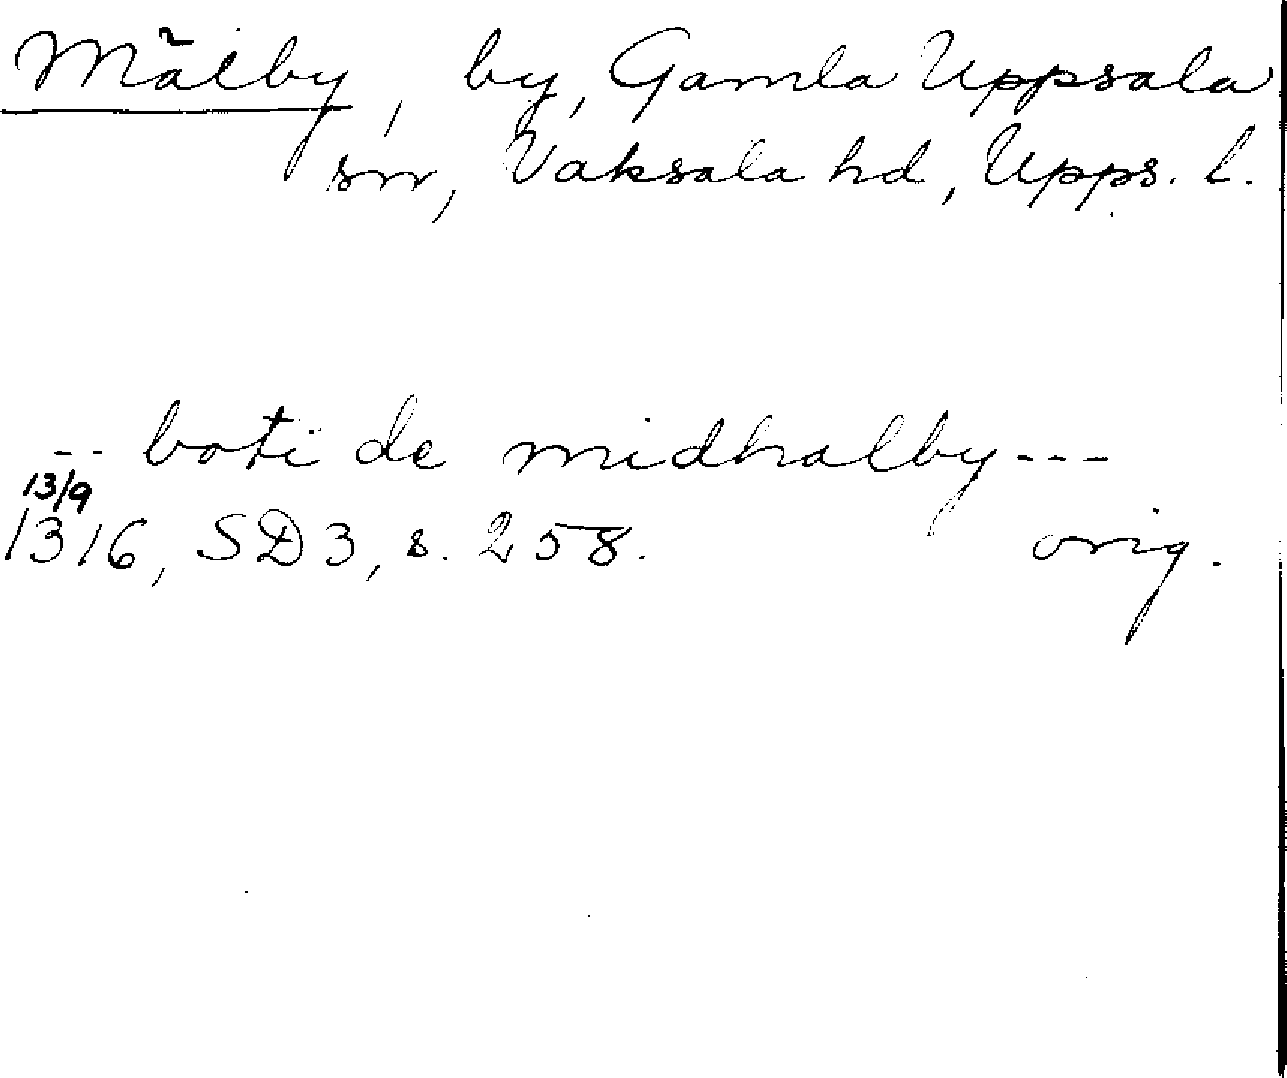 Målby, by, Gamla Uppsala
sn, Vaksala hd, Upps. l.
-- boti de midhalby ---
13/9
1316, SD 3, s. 258. orig.